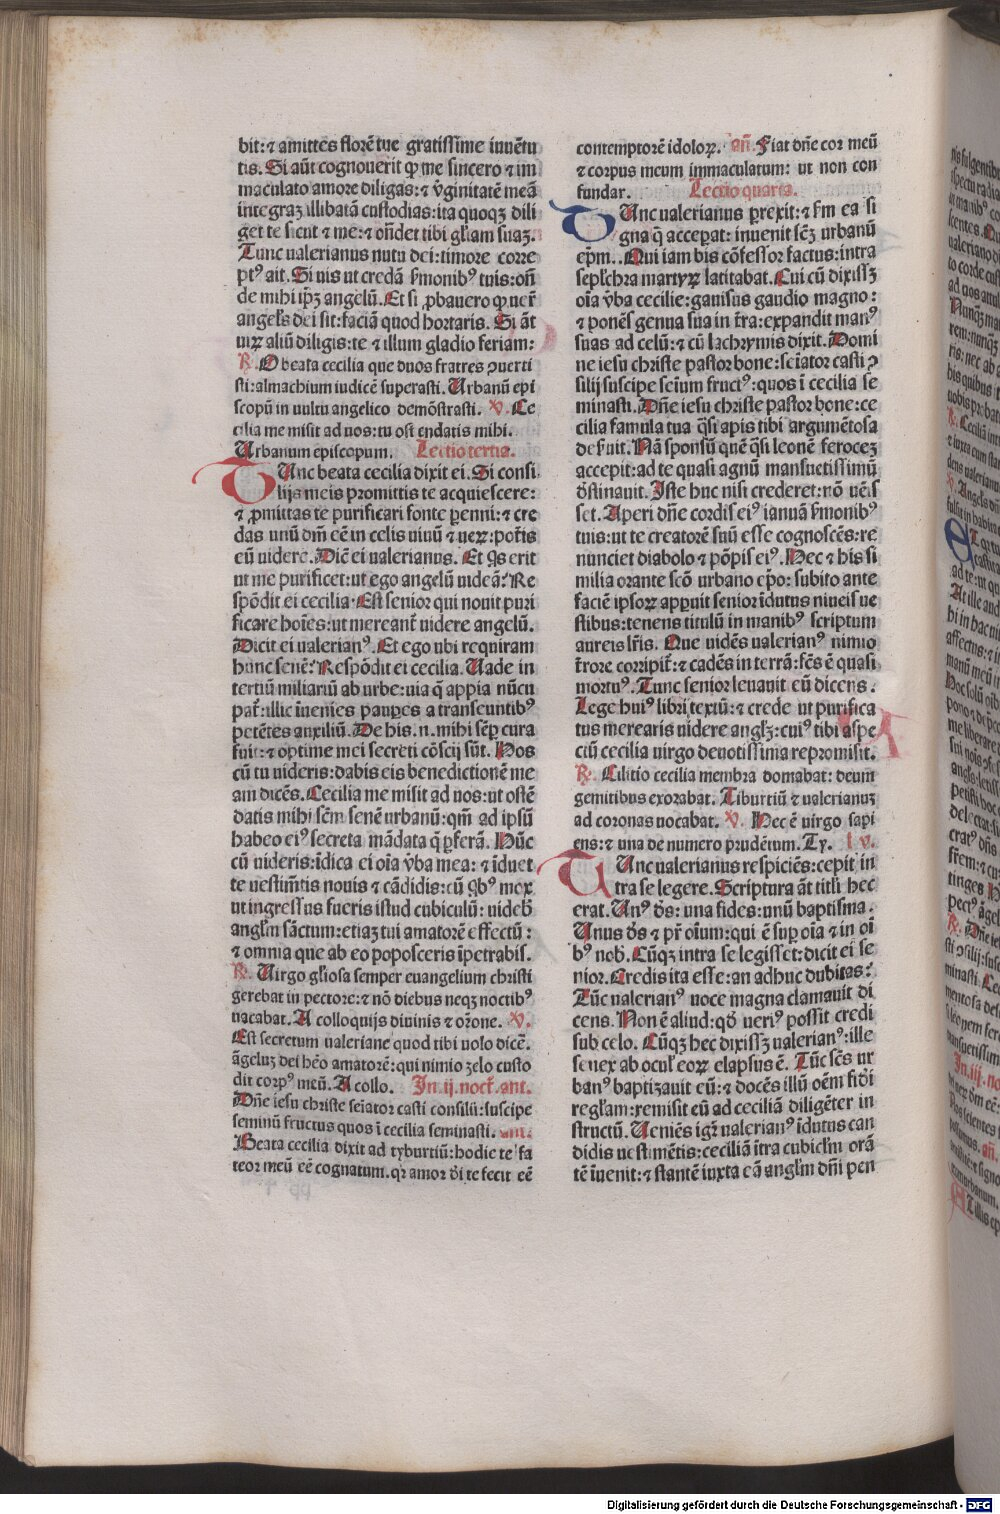 bit: ⁊ amittes florē tue gratissime iuuētu
tis. Si aūt cognouerit ꝙ me sincero ⁊ im
maculato amore diligas: ⁊ v̓ginitatē meā
integraꝫ illibatā custodias: ita quoqꝫ dili
get te sicut ⁊ me: ⁊ oñdet tibi gl̓iam suaꝫ.
Tunc valerianus nutu dei: timore corre
ptꝰ ait. Si uis ut credā s̓monibꝰ tuis: oñ
de mihi ip̄ꝫ angelū. Et si ꝓbauero ꝙ uer̄
angel̓s dei sit: faciā quod hortaris. Si āt
uiꝝ aliū diligis: te ⁊ illum gladio feriam:
℟. O beata cecilia que duos fratres ꝯuerti
sti: almachium iudicē superasti. Urbanū epi
scopū in uultu angelico demōstrasti. ℣. Ce
cilia me misit ad uos: tu ost endatis mihi.
Urbanum episcopum. Lectio tertia.
Tunc beata cecilia dixit ei. Si consi
lijs meis promittis te acquiescere:
⁊ ꝓmittas te purificari fonte ꝑenni: ⁊ cre
das unū dm̄ eē in celis uiuū ⁊ ueꝝ: pot̓is
eū uidere. Dic̄ ei ualerianus. Et q̓s erit
ut me purificet: ut ego angelū uideā? Re
spōdit ei cecilia. Est senior qui nouit puri
ficare hoīes: ut mereant̄ uidere angelū.
Dicit ei ualerianꝰ. Et ego ubi requiram
hunc senē? Respōdit ei cecilia. Uade in
tertiū miliariū ab urbe: uia q̄ appia nūcu
pat̄: illic īuenies pauꝑes a transeuntibꝰ
petētes auxiliū. De his .n. mihi sēꝑ cura
fuit: ⁊ optime mei secreti cōscij sūt. Hos
cū tu uideris: dabis eis benedictionē me
am dicēs. Cecilia me misit ad uos: ut ostē
datis mihi sc̄m senē urbanū: qm̄ ad ipsū
habeo eiꝰ secreta mādata q̄ ꝑferā. Hūc
cū uideris: īdica ei oīa v̓ba mea: ⁊ īduet
te uestim̄tis nouis ⁊ cādidis: cū qb̓ꝰ mox
ut ingressus fueris istud cubiculū: uideb̓
angl̓m sāctum: etiaꝫ tui amatorē effectū:
⁊ omnia que ab eo poposceris īpetrabis.
℟. Uirgo gl̓iosa semper euangelium christi
gerebat in pectore: ⁊ nō diebus neqꝫ noctibꝰ
uacabat. A colloquijs diuinis ⁊ or̄one. ℣.
Est secretum ualeriane quod tibi uolo dicē.
āgeluꝫ dei hēo amatorē: qui nimio ꝫelo custo
dit corpꝰ meū. A collo. In .ij. noct̄. ant.
Dn̄e iesu christe seīator casti consilii: suscipe
seminū fructus quos ī cecilia seminasti. ant.
Beata cecilia dixit ad tyburtiū: hodie te fa
teor meū eē cognatum. qr amor d̓i te fecit eē
contemptorē idoloꝝ. añ. Fiat dn̄e cor meū
⁊ corpus meum immaculatum: ut non con
fundar. Lectio quarta.
Tunc ualerianus ꝑrexit: ⁊ s̓m ea si
gna q̄ acceꝑat: inuenit sc̄ꝫ urbanū
ep̄m. Qui iam bis cōfessor factus: intra
sepl̓chra martyꝝ latitabat. Cui cū dixissꝫ
oīa v̓ba cecilie: gauisus gaudio magno:
⁊ ponēs genua sua in t̓ra: expandit manꝰ
suas ad celū: ⁊ cū lachrymis dixit. Domi
ne iesu christe pastor bone: seīator casti ꝯ
silij suscipe seīum fructꝰ: quos ī cecilia se
minasti. Dn̄e iesu christe pastor bone: ce
cilia famula tua q̓si apis tibi argumētosa
deseruit. Nā sponsū quē q̓si leonē ferocez
accepit: ad te quasi agnū mansuetissimū
d̓stinauit. Iste huc nisi crederet: nō ueīs
set. Aperi dn̄e cordis eiꝰ ianuā s̓monibꝰ
tuis: ut te creatorē suū esse cognoscēs: re
nunciet diabolo ⁊ pōpis eiꝰ. Hec ⁊ his si
milia orante scō urbano ep̄o: subito ante
faciē ipsoꝝ apꝑuit senior īdutus niueis ue
stibus: tenens titulū in manibꝰ scriptum
aureis lr̄is. Que uidēs ualerianꝰ nimio
t̓rore corripit̄: ⁊ cadēs in terrā: fc̄s ē quasi
mortuꝰ. Tunc senior leuauit eū dicens.
Lege huiꝰ libri textū: ⁊ crede ut purifica
tus merearis uidere angl̓ꝫ: cuiꝰ tibi aspe
ctū cecilia uirgo deuotissima repromisit.
℟. Cilitio cecilia membra domabat: deum
gemitibus exorabat. Tiburtiū ⁊ ualerianuꝫ
ad coronas uocabat. ℣. Hec ē uirgo sapi
ens: ⁊ una de numero prudētum. Ty. l v.
Tunc valerianus respiciēs: cepit in
tra se legere. Scriptura āt titl̓i hec
erat. Unꝰ d̓s: una fides: unū baptisma.
Unus d̓s ⁊ pr̄ oīum: qui ē suꝑ oīa ⁊ in oī
bꝰ nob̓. Cūqꝫ intra se legisset: dicit ei se
nior. Credis ita esse: an adhuc dubitas?
Tūc ualerianꝰ uoce magna clamauit di
cens. Non ē aliud: qd̓ ueriꝰ possit credi
sub celo. Cūqꝫ hec dixissꝫ ualerianꝰ: ille
senex ab ocul̓ eoꝝ elapsus ē. Tūc sc̄s ur
banꝰ baptizauit eū: ⁊ docēs illū oēm fid̓i
regl̓am: remisit eū ad ceciliā diligēter in
structū. Ueniēs igr̄ ualerianꝰ īdutus can
didis uestimētis: ceciliā ītra cubicl̓m orā
tē īuenit: ⁊ stantē iuxta eā angl̓m dn̄i pen
Digitalisierung gefördert durch die Deutsche Forschungsgemeinschaft - DFG